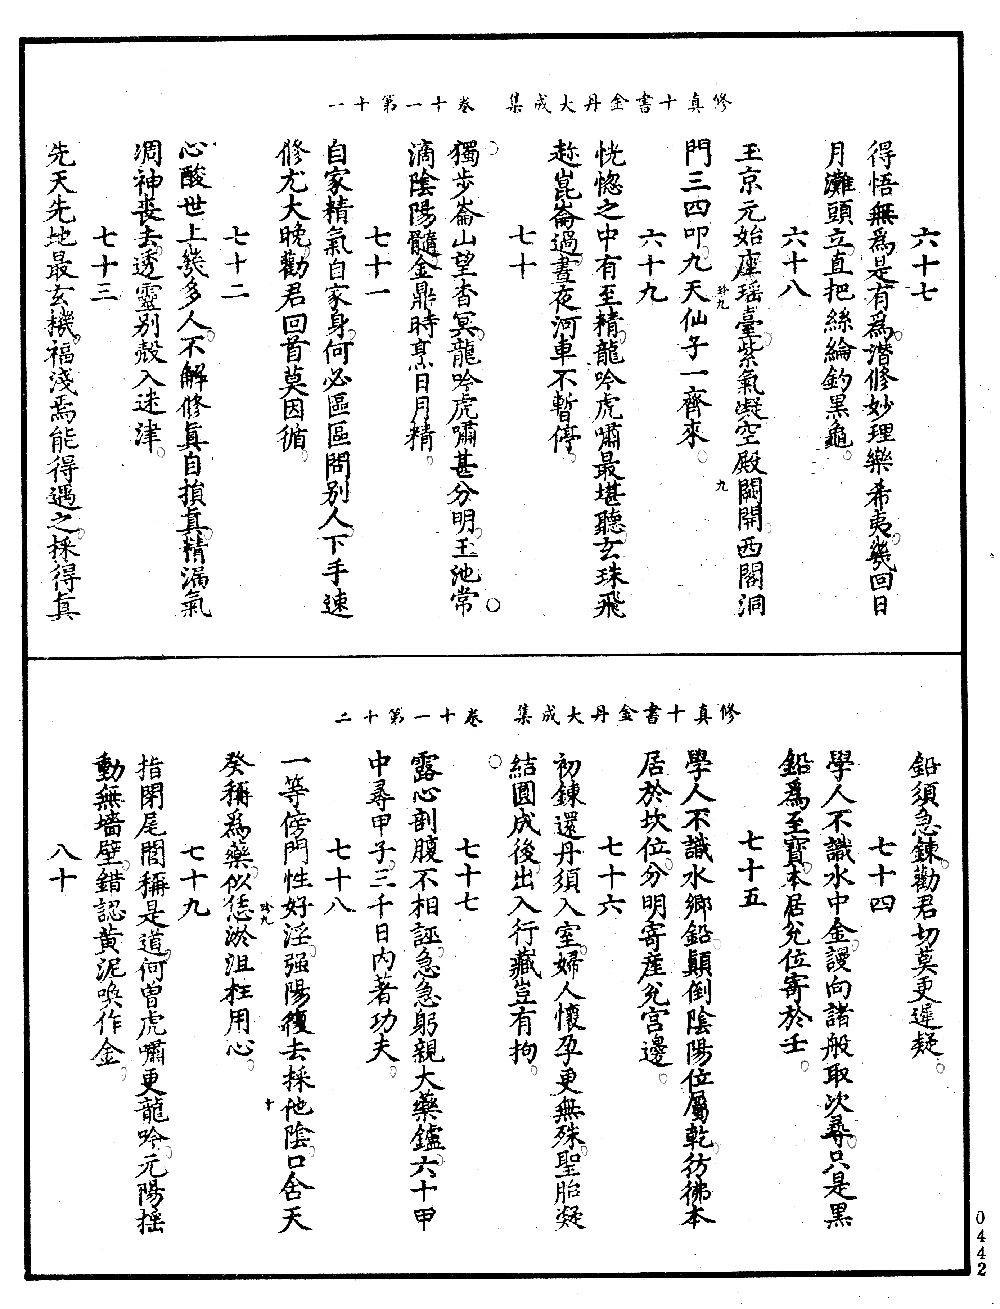 修真十書金丹大成集　卷十一第十一
六十七
得悟無爲是有爲。潛修妙理樂希夷。幾回日
月灘頭立。直把絲綸釣黑龜。
六十八
玉京元始座瑤臺。紫氣凝空殿闕開。西閣洞
門三四叩。九天仙子一齊來。
六十九
恍惚之中有至精。龍吟虎嘯最堪聽。玄珠飛
趂崑崙過。晝夜河車不暫停。
七十
獨步崙山望杳冥。龍吟虎嘯甚分明。玉池常
滴陰陽髓。金鼎時烹日月精。
七十一
自家精氣自家身。何必區區問別人。下手速
修尤大晚。勸君回首莫因循。
七十二
心酸世上幾多人。不解修眞自損眞。精漏氣
凋神喪去。透靈別殼入迷津。
七十三
先天先地最玄機。福淺焉能得遇之。採得眞
修真十書金丹大成集　卷十一第十二
鉛須急鍊。勸君切莫更遲疑。
七十四
學人不識水中金。謾向諸般取次尋。只是黑
鉛爲至寶。本居兌位寄於壬。
七十五
學人不識水鄉鉛。顛倒陰陽位屬乾。彷彿本
居於坎位。分明寄産兌宮邊。
七十六
初鍊還丹須入室。婦人懷孕更無殊。聖胎凝
結圓成後。出入行藏豈有拘。
七十七
露心剖腹不相誣。急急躬親大藥鑪。六十甲
中尋甲子。三千日內著功夫。
七十八
一等傍門性好淫。强陽復去採他陰。口含天
癸稱爲藥。似恁淤沮枉用心。
七十九
指閉尾閭稱是道。何曾虎嘯更龍吟。元陽搖
動無墻壁。錯認黃泥喚作金。
八十
0442